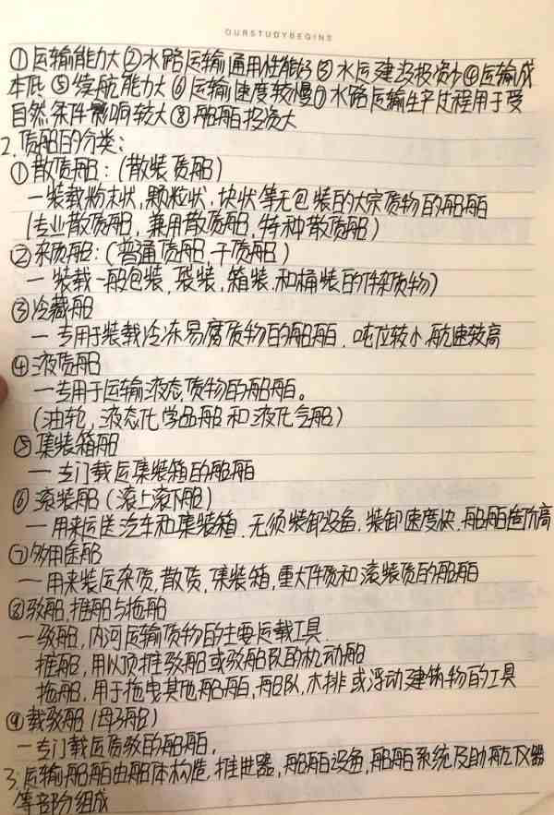 OURSTUDYBEGINS
①运输能力大②水路运输通用性能好③水运建设投资少④运输成
本低⑤续航能力大⑥运输速度较慢⑦水路运输生产过程用于受
自然条件影响较大⑧船舶投资大
2.货船的分类：
①散货船：(散装货船)
一装载粉末状，颗粒状，块状等无包装的大宗货物的船舶
(专业散货船，兼用散货船，特种散货船)
②杂货船：(普通货船，干货船)
一装载一般包装，袋装，箱装和桶装的件杂货物)
③冷藏船
一专用于装载冷冻易腐货物的船舶，吨位较小，航速较高
④液货船
一专用于运输液态货物的船舶。
(油轮，液态化学品船和液化气船)
⑤集装箱船
一专门载运集装箱的船舶
⑥滚装船(滚上滚下船)
一用来运送汽车和集装箱，无须装卸设备，装卸速度快，船舶造价高
⑦多用途船
一用来装运杂货，散货，集装箱，重大件货和滚装货的船舶
⑧驳船，推船与拖船
一驳船，内河运输货物的主要运载工具.
推船，用以顶推驳船或驳船队的机动船
拖船，用于拖曳其他船舶，船队，木排或浮动建筑物的工具
⑨载驳船(母子船)
一专门载运货驳的船舶，
3.运输船舶由船体构造，推进器，船舶设备，船舶系统及助航仪器
等部分组成